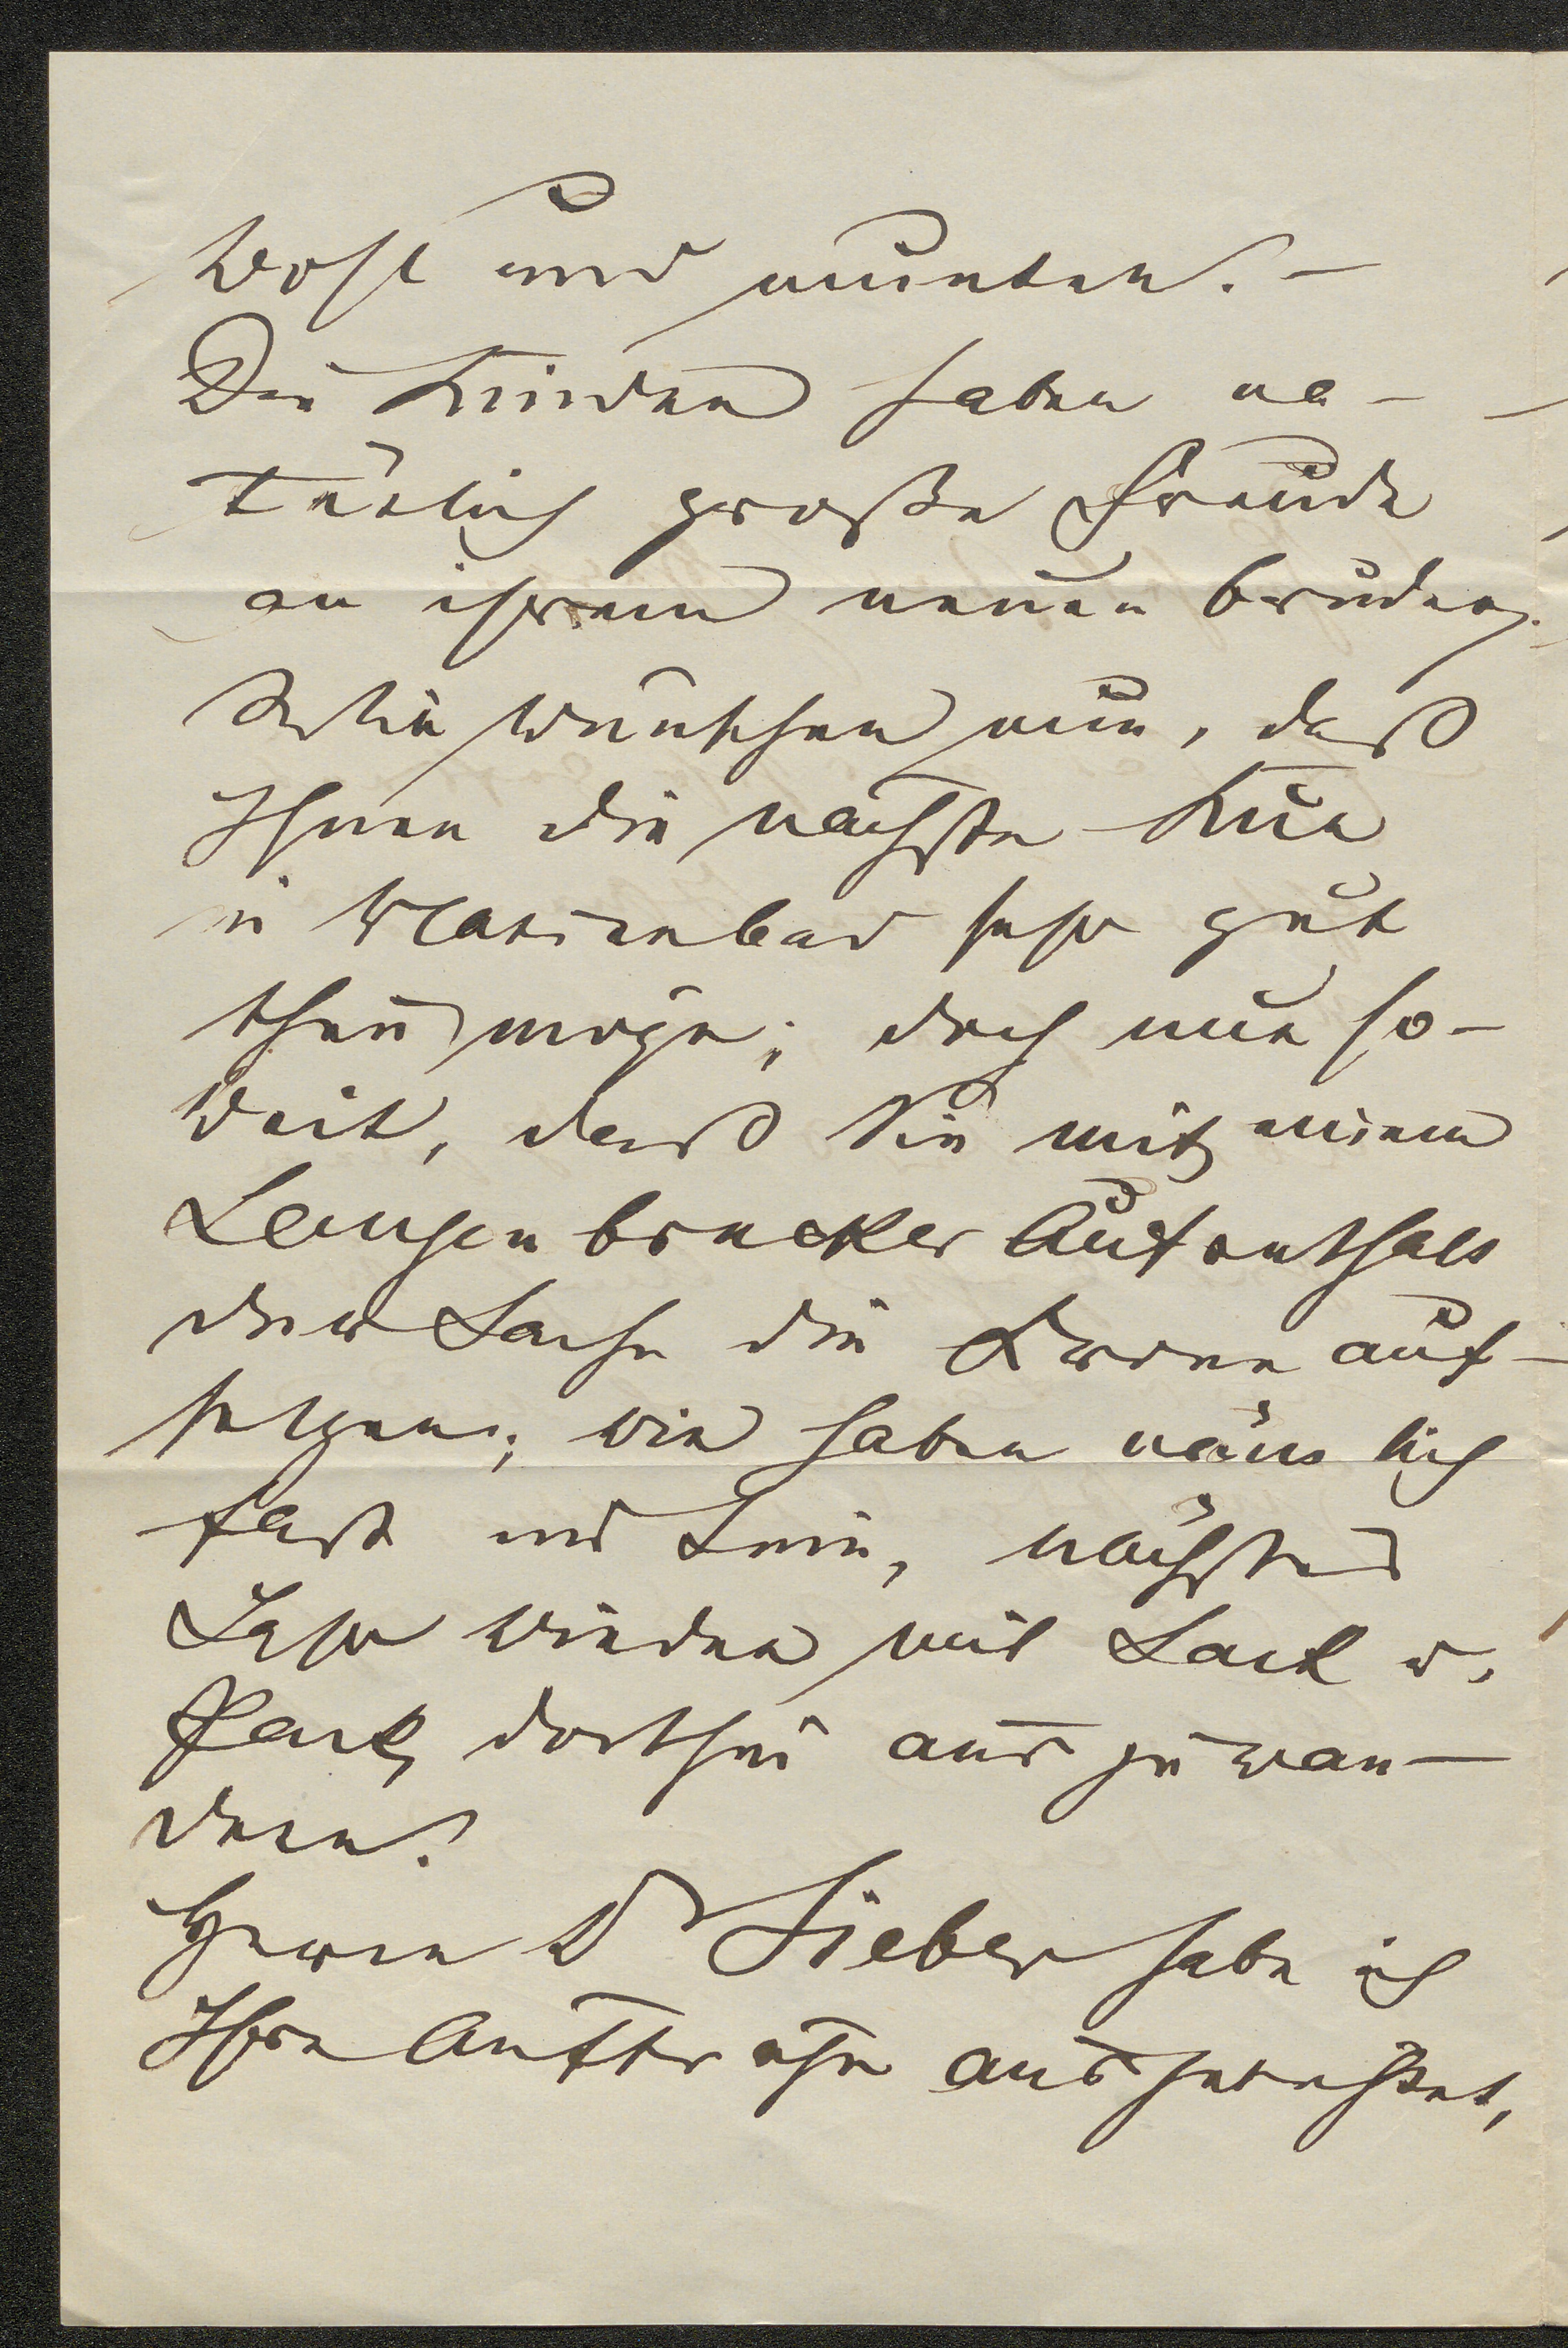 wohl und munter. –
Die Kinder haben na-
türlich große Freude
an ihrem neuen Bruder.
Wir wünschen nun, daß
Ihnen die nächste Kur
in Marienbad sehr gut
thun möge; doch nur so-
weit, daß Sie mit einem
Langenbrucker Aufenthalt
der Sache die Krone auf-
setzen; wir haben nämlich
fast im Sinn, nächstes
Jahr wieder mit Sack u.
Pack dorthin auszuwan-
dern.
Herrn Dr Sieber habe ich
Ihre Aufträge ausgerichtet,